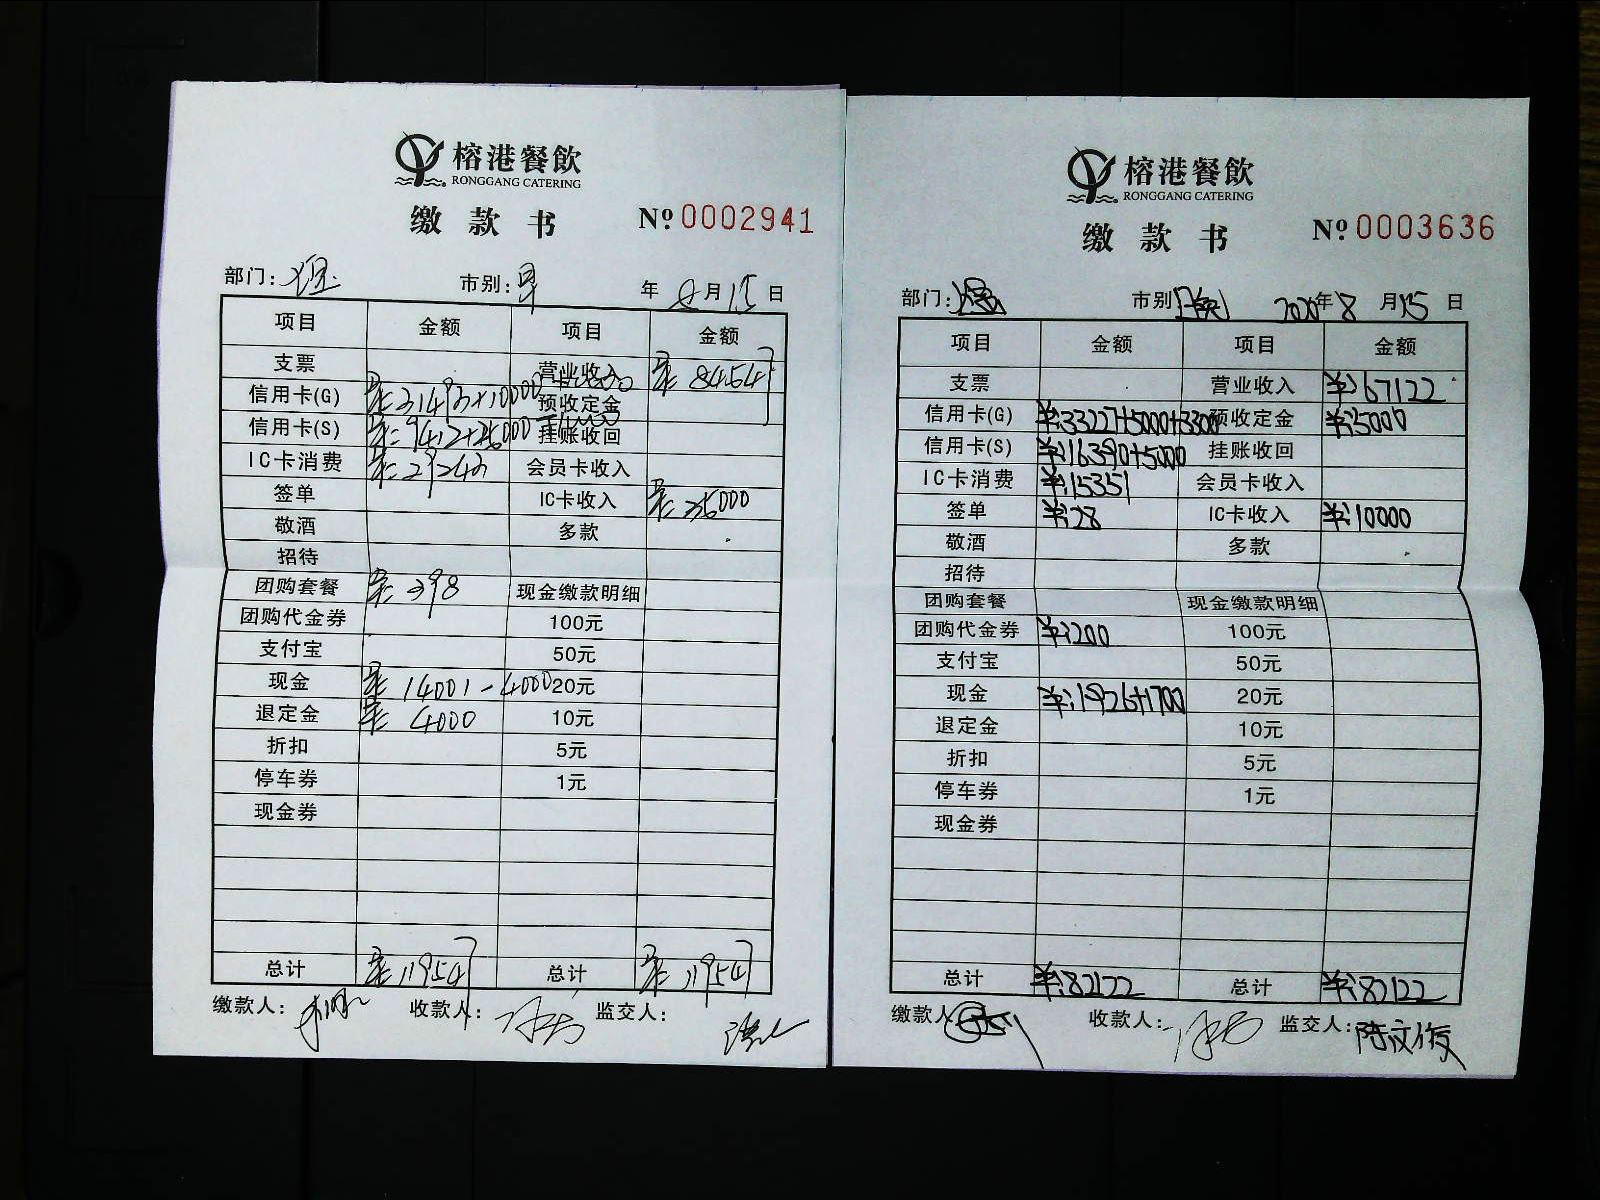 榕港餐飲
RONGGANG CATERING
缴款书
№ 0002941
部门： 市别：早 年 8月15日
项目 金额 项目 金额
支票 营业收入 ¥: 84547
信用卡(G) 预收定金
信用卡(S) 挂账收回
IC卡消费 会员卡收入
签单 IC卡收入 ¥: 35000
敬酒 多款
招待
团购套餐 ¥: 398 现金缴款明细
团购代金券 100元
支付宝 50元
现金 ¥: 14001-4000 20元
退定金 ¥: 4000 10元
折扣 5元
停车券 1元
现金券
总计 ¥: 119547 总计 ¥: 119547
缴款人： 收款人： 监交人：
榕港餐飲
RONGGANG CATERING
缴款书
№ 0003636
部门： 市别：晚 2020年8月15日
项目 金额 项目 金额
支票 营业收入 ¥:67122
信用卡(G) ¥:33227+5000+3300 预收定金 ¥:5000
信用卡(S) ¥:16390+5000 挂账收回
IC卡消费 ¥:15351 会员卡收入
签单 ¥:28 IC卡收入 ¥:10000
敬酒 多款
招待
团购套餐 现金缴款明细
团购代金券 ¥:200 100元
支付宝 50元
现金 ¥:1926+1700 20元
退定金 10元
折扣 5元
停车券 1元
现金券
总计 ¥:82122 总计 ¥:82122
缴款人： 收款人： 监交人：陈文俊